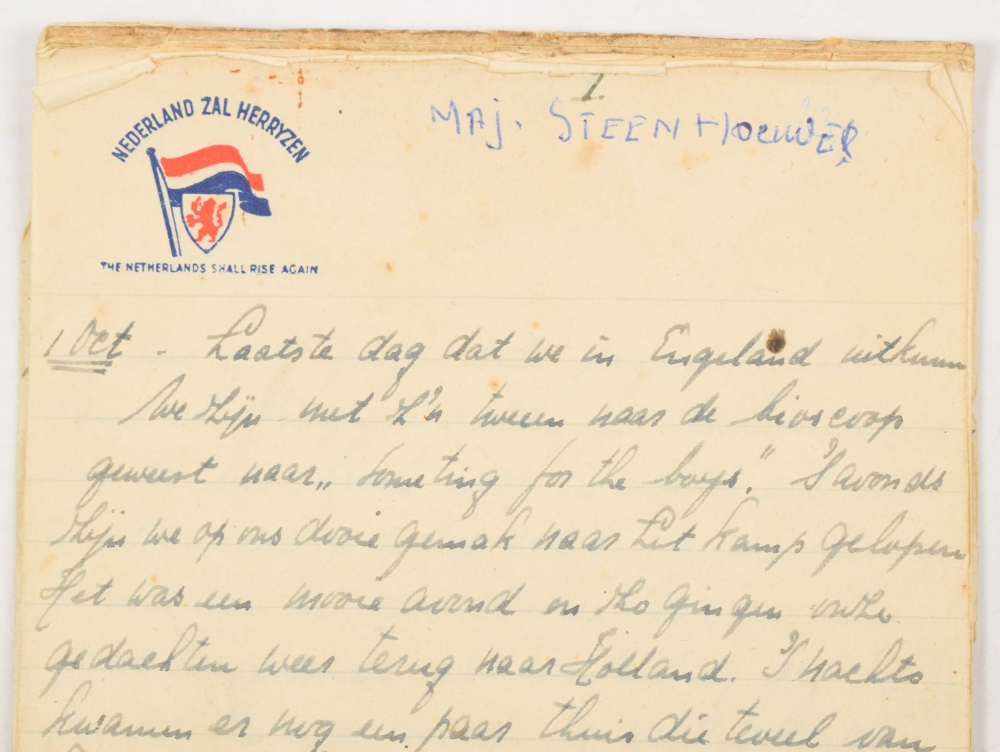 1
MAJ. STEENHOUWER
NEDERLAND ZAL HERRYZEN
THE NETHERLANDS SHALL RISE AGAIN
1 Oct - Laatste dag dat we in Engeland uitkunnen
We zijn met z'n tweeen naar de bioscoop
geweest naar „Someting for the boys." 's avonds
zijn we op ons dooie gemak naar het kamp gelopen
Het was een mooie avond en zo gingen onze
gedachten weer terug naar Holland. 's nachts
kwamen er nog een paar thuis die teveel van